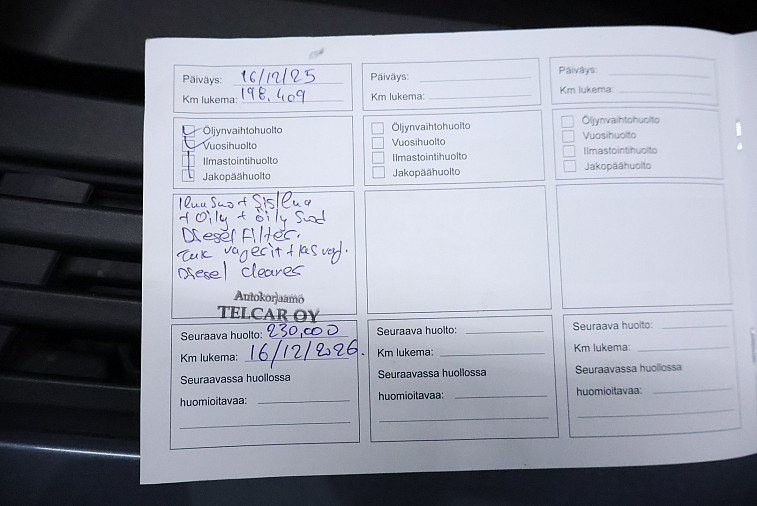 Päiväys: 16/12/25
Km lukema: 198.409
Öljynvaihtohuolto
Vuosihuolto
Ilmastointihuolto
Jakopäähuolto
+ Öily + öily Suod
Diesel Filter.
Diesel cleares
Autokorjaamo
TELCAR OY
Seuraava huolto: 230,000
Km lukema: 16/12/2026.
Seuraavassa huollossa
huomioitavaa:
Päiväys:
Km lukema:
Öljynvaihtohuolto
Vuosihuolto
Ilmastointihuolto
Jakopäähuolto
Seuraava huolto:
Km lukema:
Seuraavassa huollossa
huomioitavaa:
Päiväys:
Km lukema:
Öljynvaihtohuolto
Vuosihuolto
Ilmastointihuolto
Jakopäähuolto
Seuraava huolto:
Km lukema:
Seuraavassa huollossa
huomioitavaa: